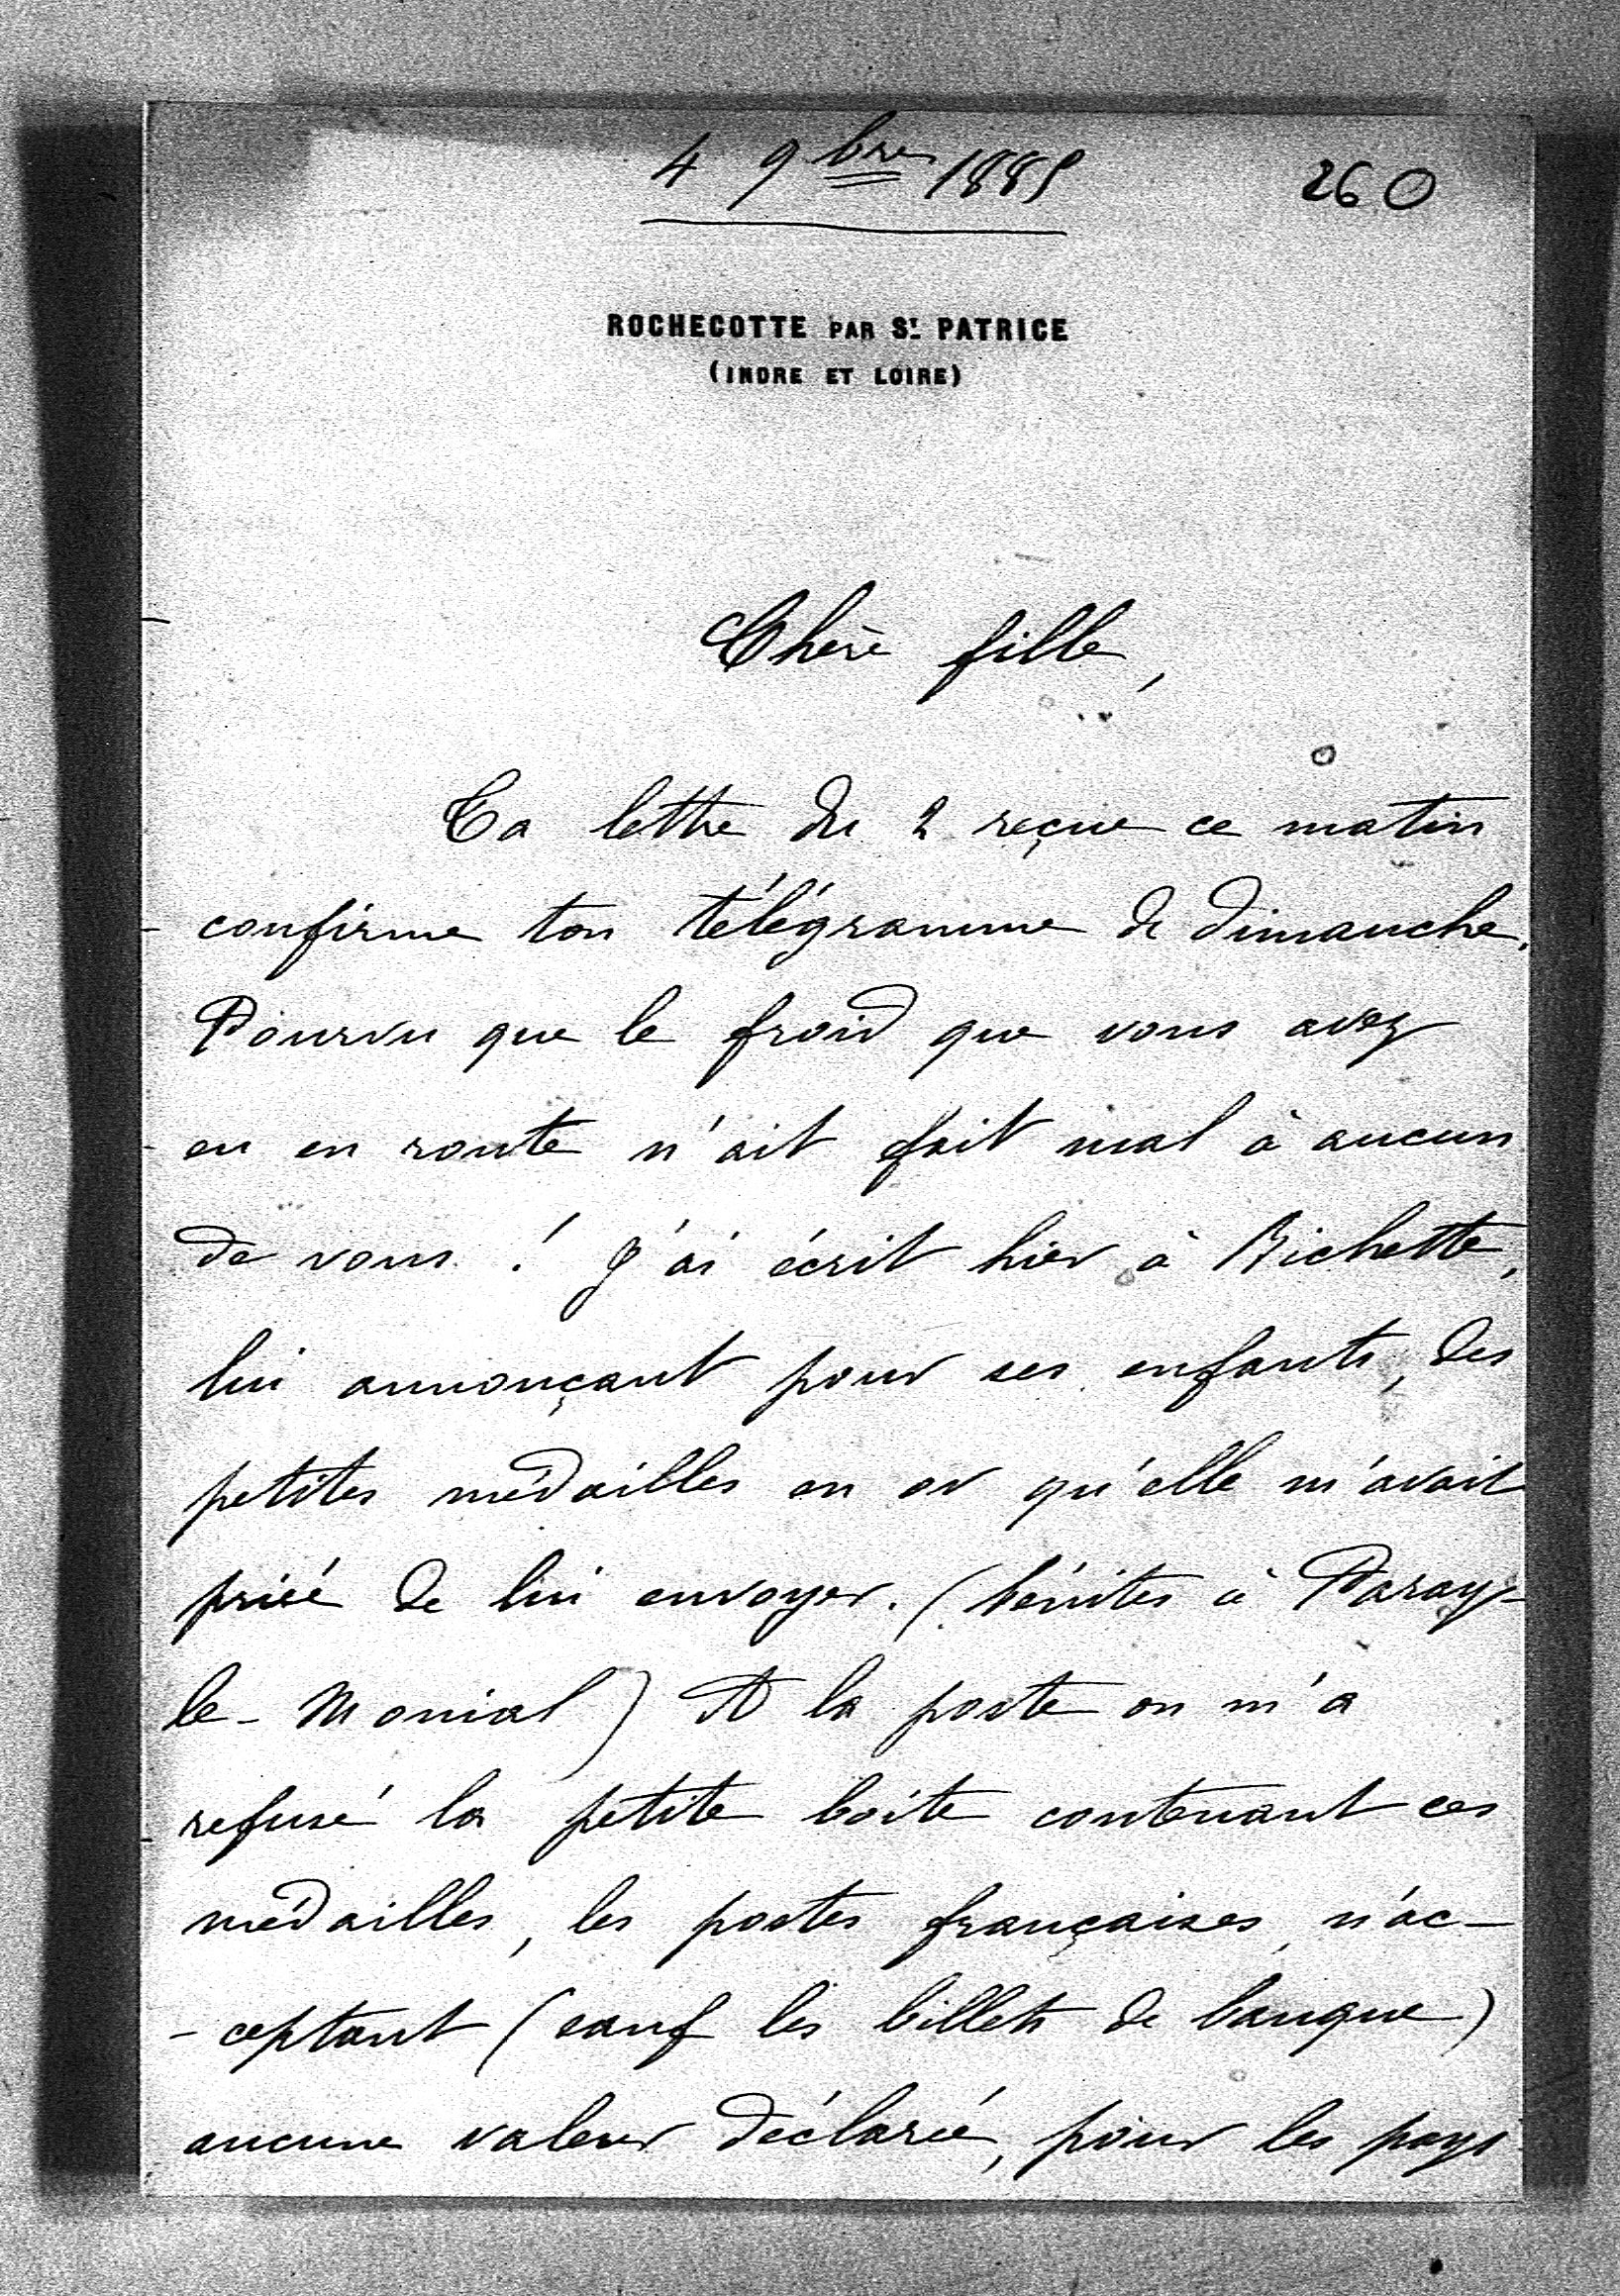 4 9bre 1885
260
ROCHECOTTE PAR ST PATRICE
(INDRE ET LOIRE)
Chère fille,
Ta lettre du 2 reçue ce matin
confirme ton télégramme de dimanche.
Pourvu que le froid que vous avez
eu en route n'ait fait mal à aucun
de vous ! J'ai écrit hier à Bichette,
lui annonçant pour ses enfants, des
petites médailles en or qu'elle m'avait
priée de lui envoyer. (bénites à Paray-
le-Monial) A la poste on m'a
refusé la petite boite contenant ces
médailles, les postes françaises, n'ac-
-ceptant (sauf les billets de banque)
aucune valeur déclarée, pour les pays